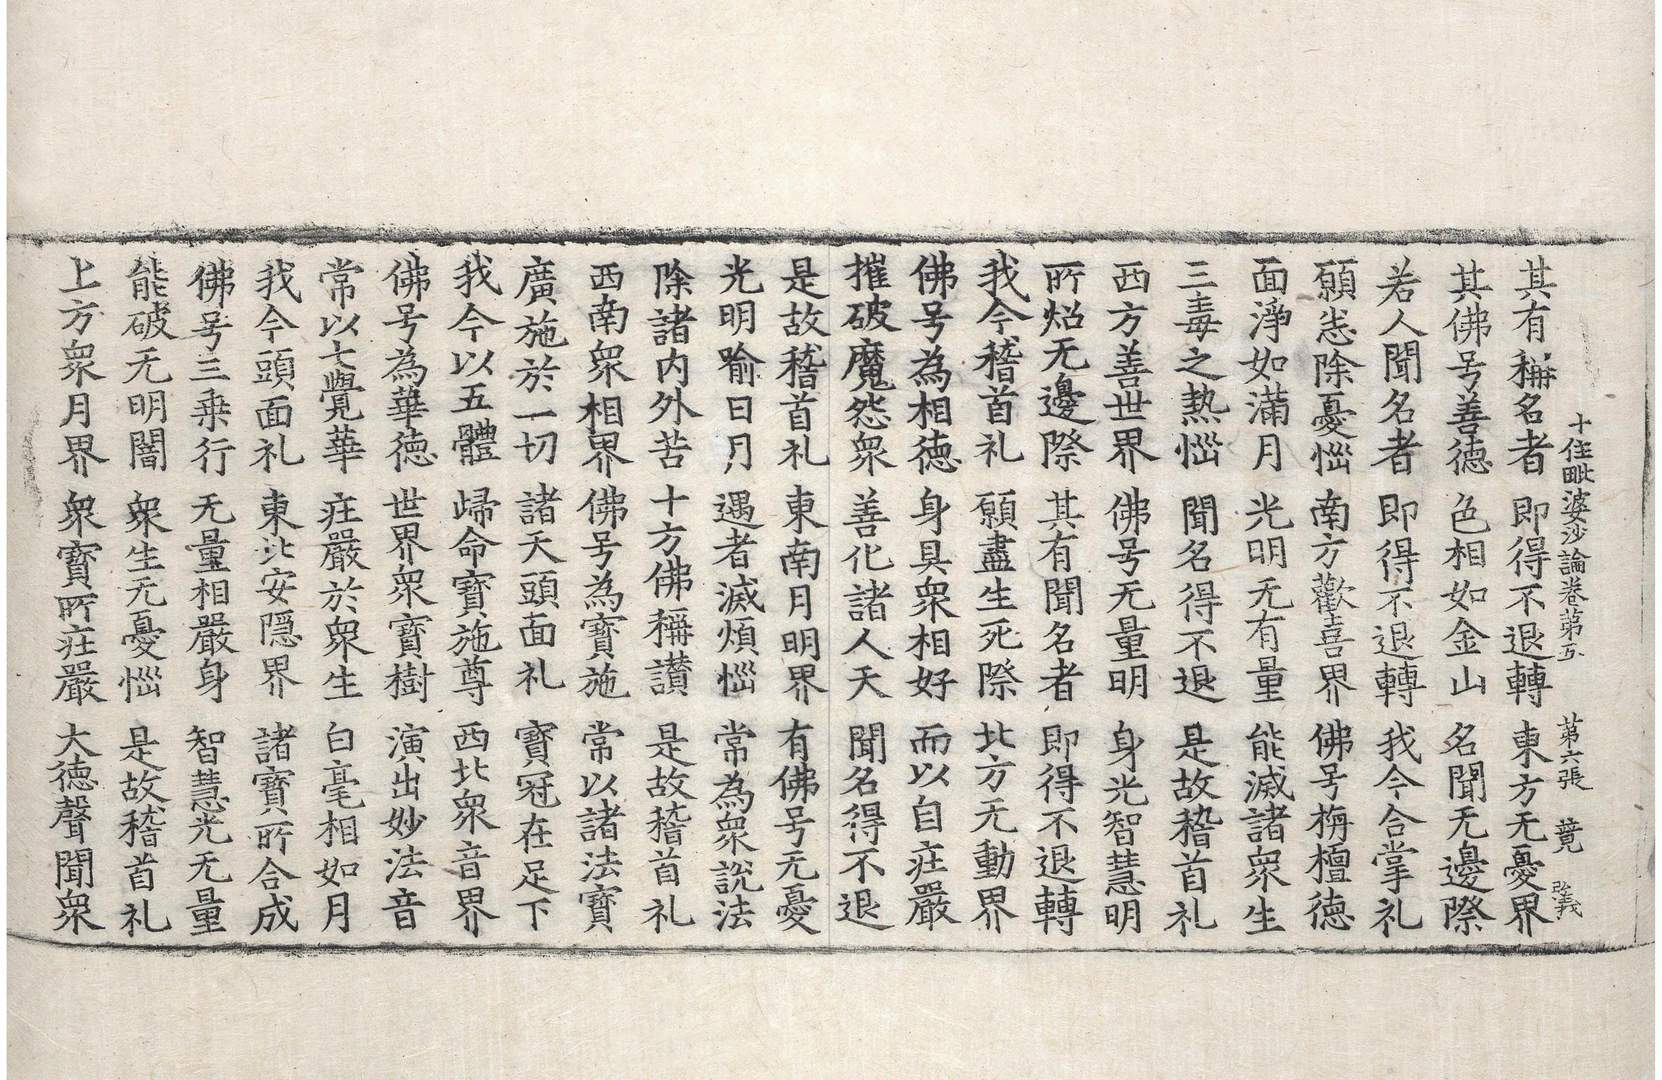 十住毗婆沙論卷第五 第六張 竟
其有稱名者 即得不退轉 東方无憂界
其佛号善德 色相如金山 名聞无邊際
若人聞名者 即得不退轉 我今合掌礼
願悉除憂惱 南方歡喜界 佛号栴檀德
面淨如滿月 光明无有量 能滅諸衆生
三毒之熱惱 聞名得不退 是故稽首礼
西方善世界 佛号无量明 身光智慧明
所炤无邊際 其有聞名者 即得不退轉
我今稽首礼 願盡生死際 北方无動界
佛号為相德 身具衆相好 而以自庄嚴
摧破魔怨衆 善化諸人天 聞名得不退
是故稽首礼 東南月明界 有佛号无憂
光明喻日月 遇者滅煩惱 常為衆說法
除諸内外苦 十方佛稱讃 是故稽首礼
西南衆相界 佛号為寶施 常以諸法寶
廣施於一切 諸天頭面礼 寶冠在足下
我今以五體 歸命寶施尊 西北衆音界
佛号為華德 世界衆寶樹 演出妙法音
常以七覺華 庄嚴於衆生 白毫相如月
我今頭面礼 東北安隱界 諸寶所合成
佛号三乘行 无量相嚴身 智慧光无量
能破无明闇 衆生无憂惱 是故稽首礼
上方衆月界 衆寶所庄嚴 大德聲聞衆